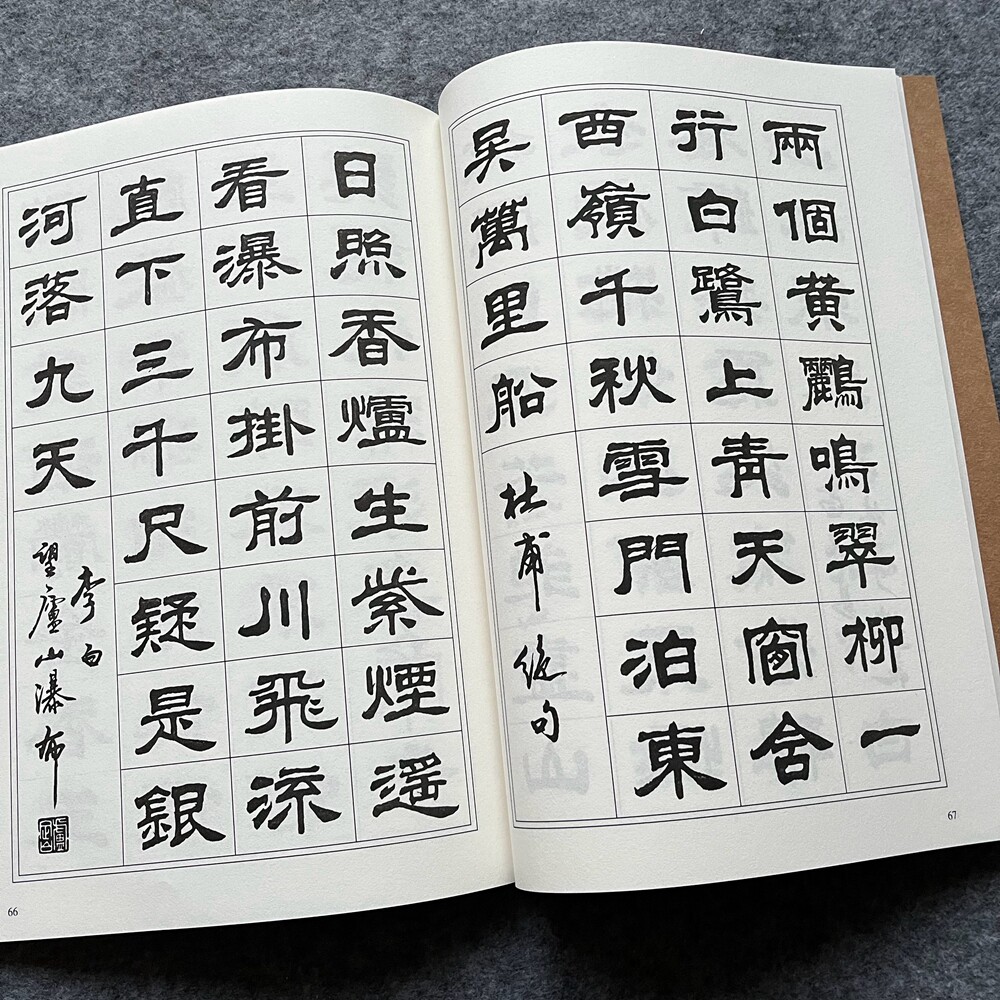 日照香爐生紫煙遥
看瀑布掛前川飛流
直下三千尺疑是銀
河落九天
李白
望廬山瀑布
66
兩個黄鸝鳴翠柳一
行白鷺上青天窗含
西嶺千秋雪門泊東
吴萬里船
杜甫 絶句
67